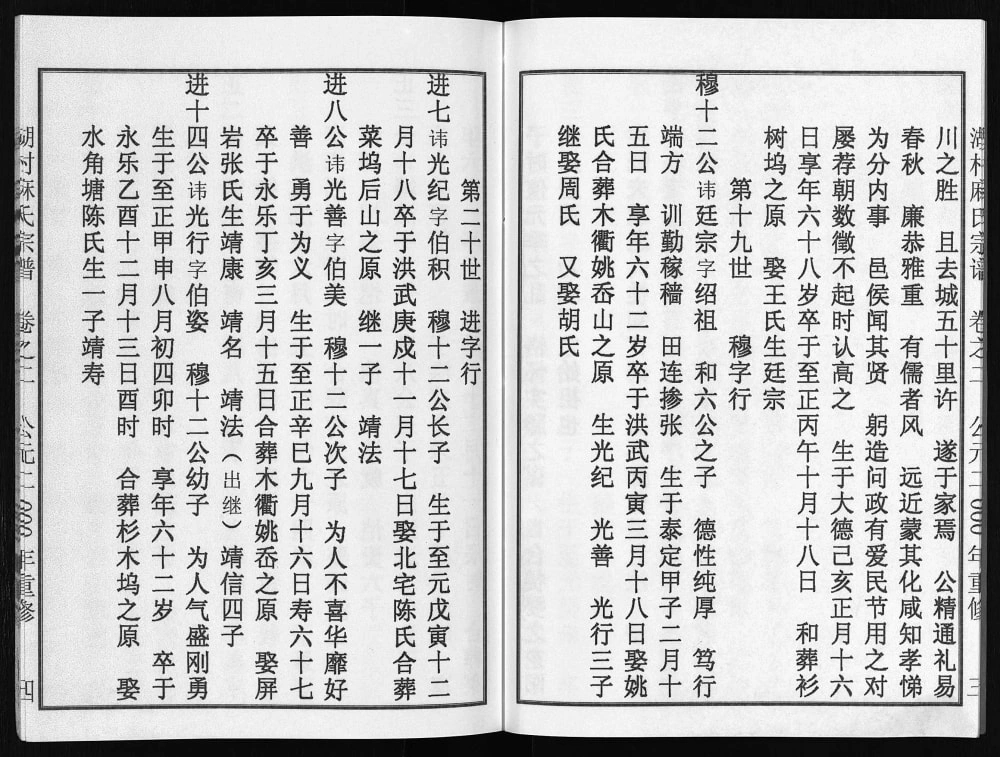 川之胜　且去城五十里许　遂于家焉　公精通礼易
春秋　廉恭雅重　有儒者风　远近蒙其化咸知孝悌
为分内事　邑侯闻其贤　躬造问政有爱民节用之对
屡荐朝数徵不起时认高之　生于大德己亥正月十六
日享年六十八岁卒于至正丙午十月十八日　和葬衫
树坞之原　娶王氏生廷宗
第十九世　穆字行
穆十二公讳廷宗字绍祖　和六公之子　德性纯厚　笃行
端方　训勤稼穑　田连掺张　生于泰定甲子二月十
五日　享年六十二岁卒于洪武丙寅三月十八日娶姚
氏合葬木衢姚岙山之原　生光纪　光善　光行三子
继娶周氏　又娶胡氏
第二十世　进字行
进七讳光纪字伯积　穆十二公长子　生于至元戊寅十二
月十八卒于洪武庚戍十一月十七日娶北宅陈氏合葬
菜坞后山之原　继一子　靖法
进八公讳光善字伯美　穆十二公次子　为人不喜华靡好
善　勇于为义　生于至正辛巳九月十六日寿六十七
卒于永乐丁亥三月十五日合葬木衢姚岙之原　娶屏
岩张氏生靖康　靖名　靖法（出继）靖信四子
进十四公讳光行字伯姿　穆十二公幼子　为人气盛刚勇
生于至正甲申八月初四卯时　享年六十二岁　卒于
永乐乙酉十二月十三日酉时　合葬杉木坞之原　娶
水角塘陈氏生一子靖寿
卷之二　公元二000年重修　三
卷之二　公元二000年重修　四